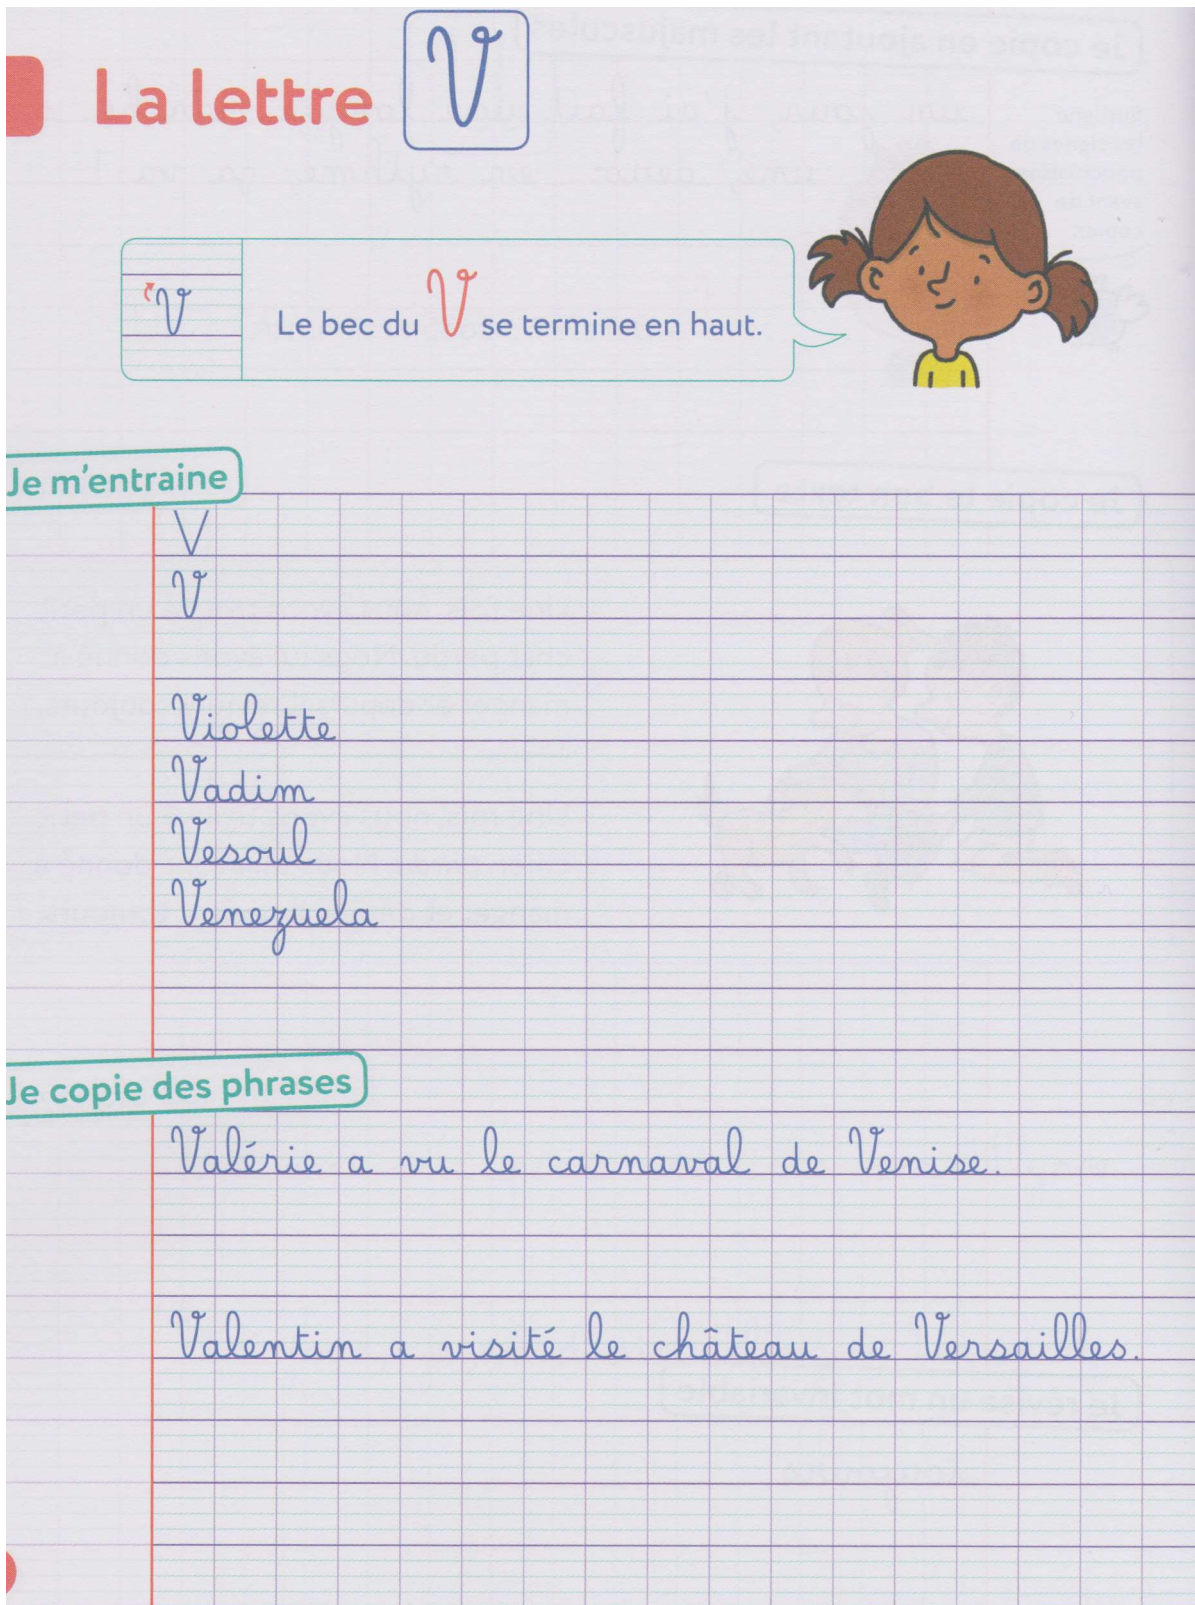 La lettre V
V
Le bec du V se termine en haut.
Je m'entraine
V
V
Violette
Vadim
Vesoul
Venezuela
Je copie des phrases
Valérie a vu le carnaval de Venise.
Valentin a visité le château de Versailles.